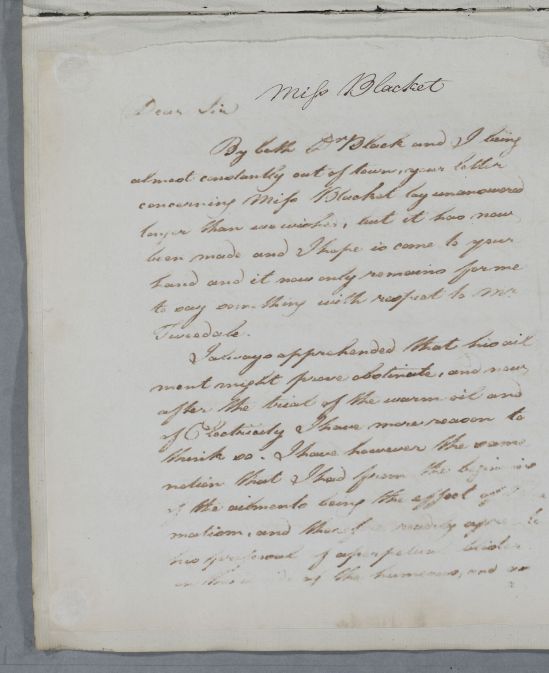 Miss Blacket
Dear Sir
By both Dr Black and I being
almost constantly out of town, your letter
concerning Miss Blacket lay unanswered
longer than we wished, but it has now
been made and I hope is come to your
hand and it now only remains for me
to say something with respect to Mr.
Tweedale.
I always apprehended that his ail
ment might prove obstinate, and now
after the trial of the warm oil and
of Electricity I have more reason to
think so. I have however the same
notion that I had from the beginning
of the ailments being the effect of
matism, and therefore readily agree to
his proposal of a perpetual blister
of the humerus, and